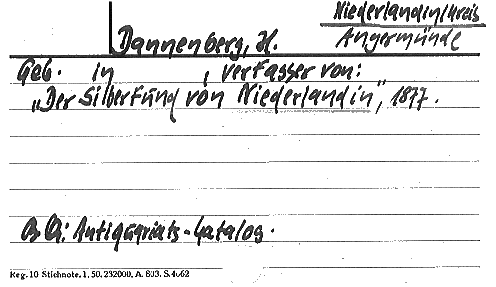 Niederlandin/Kreis
Dannenberg, H. Angermünde
Geb. in , Verfasser von:
„Der Silberfund von Niederlandin", 1877.
Antiquariats-Catalog.
Reg. 10 Stichnote, 1. 50. 232000, A. 803. S. 4662